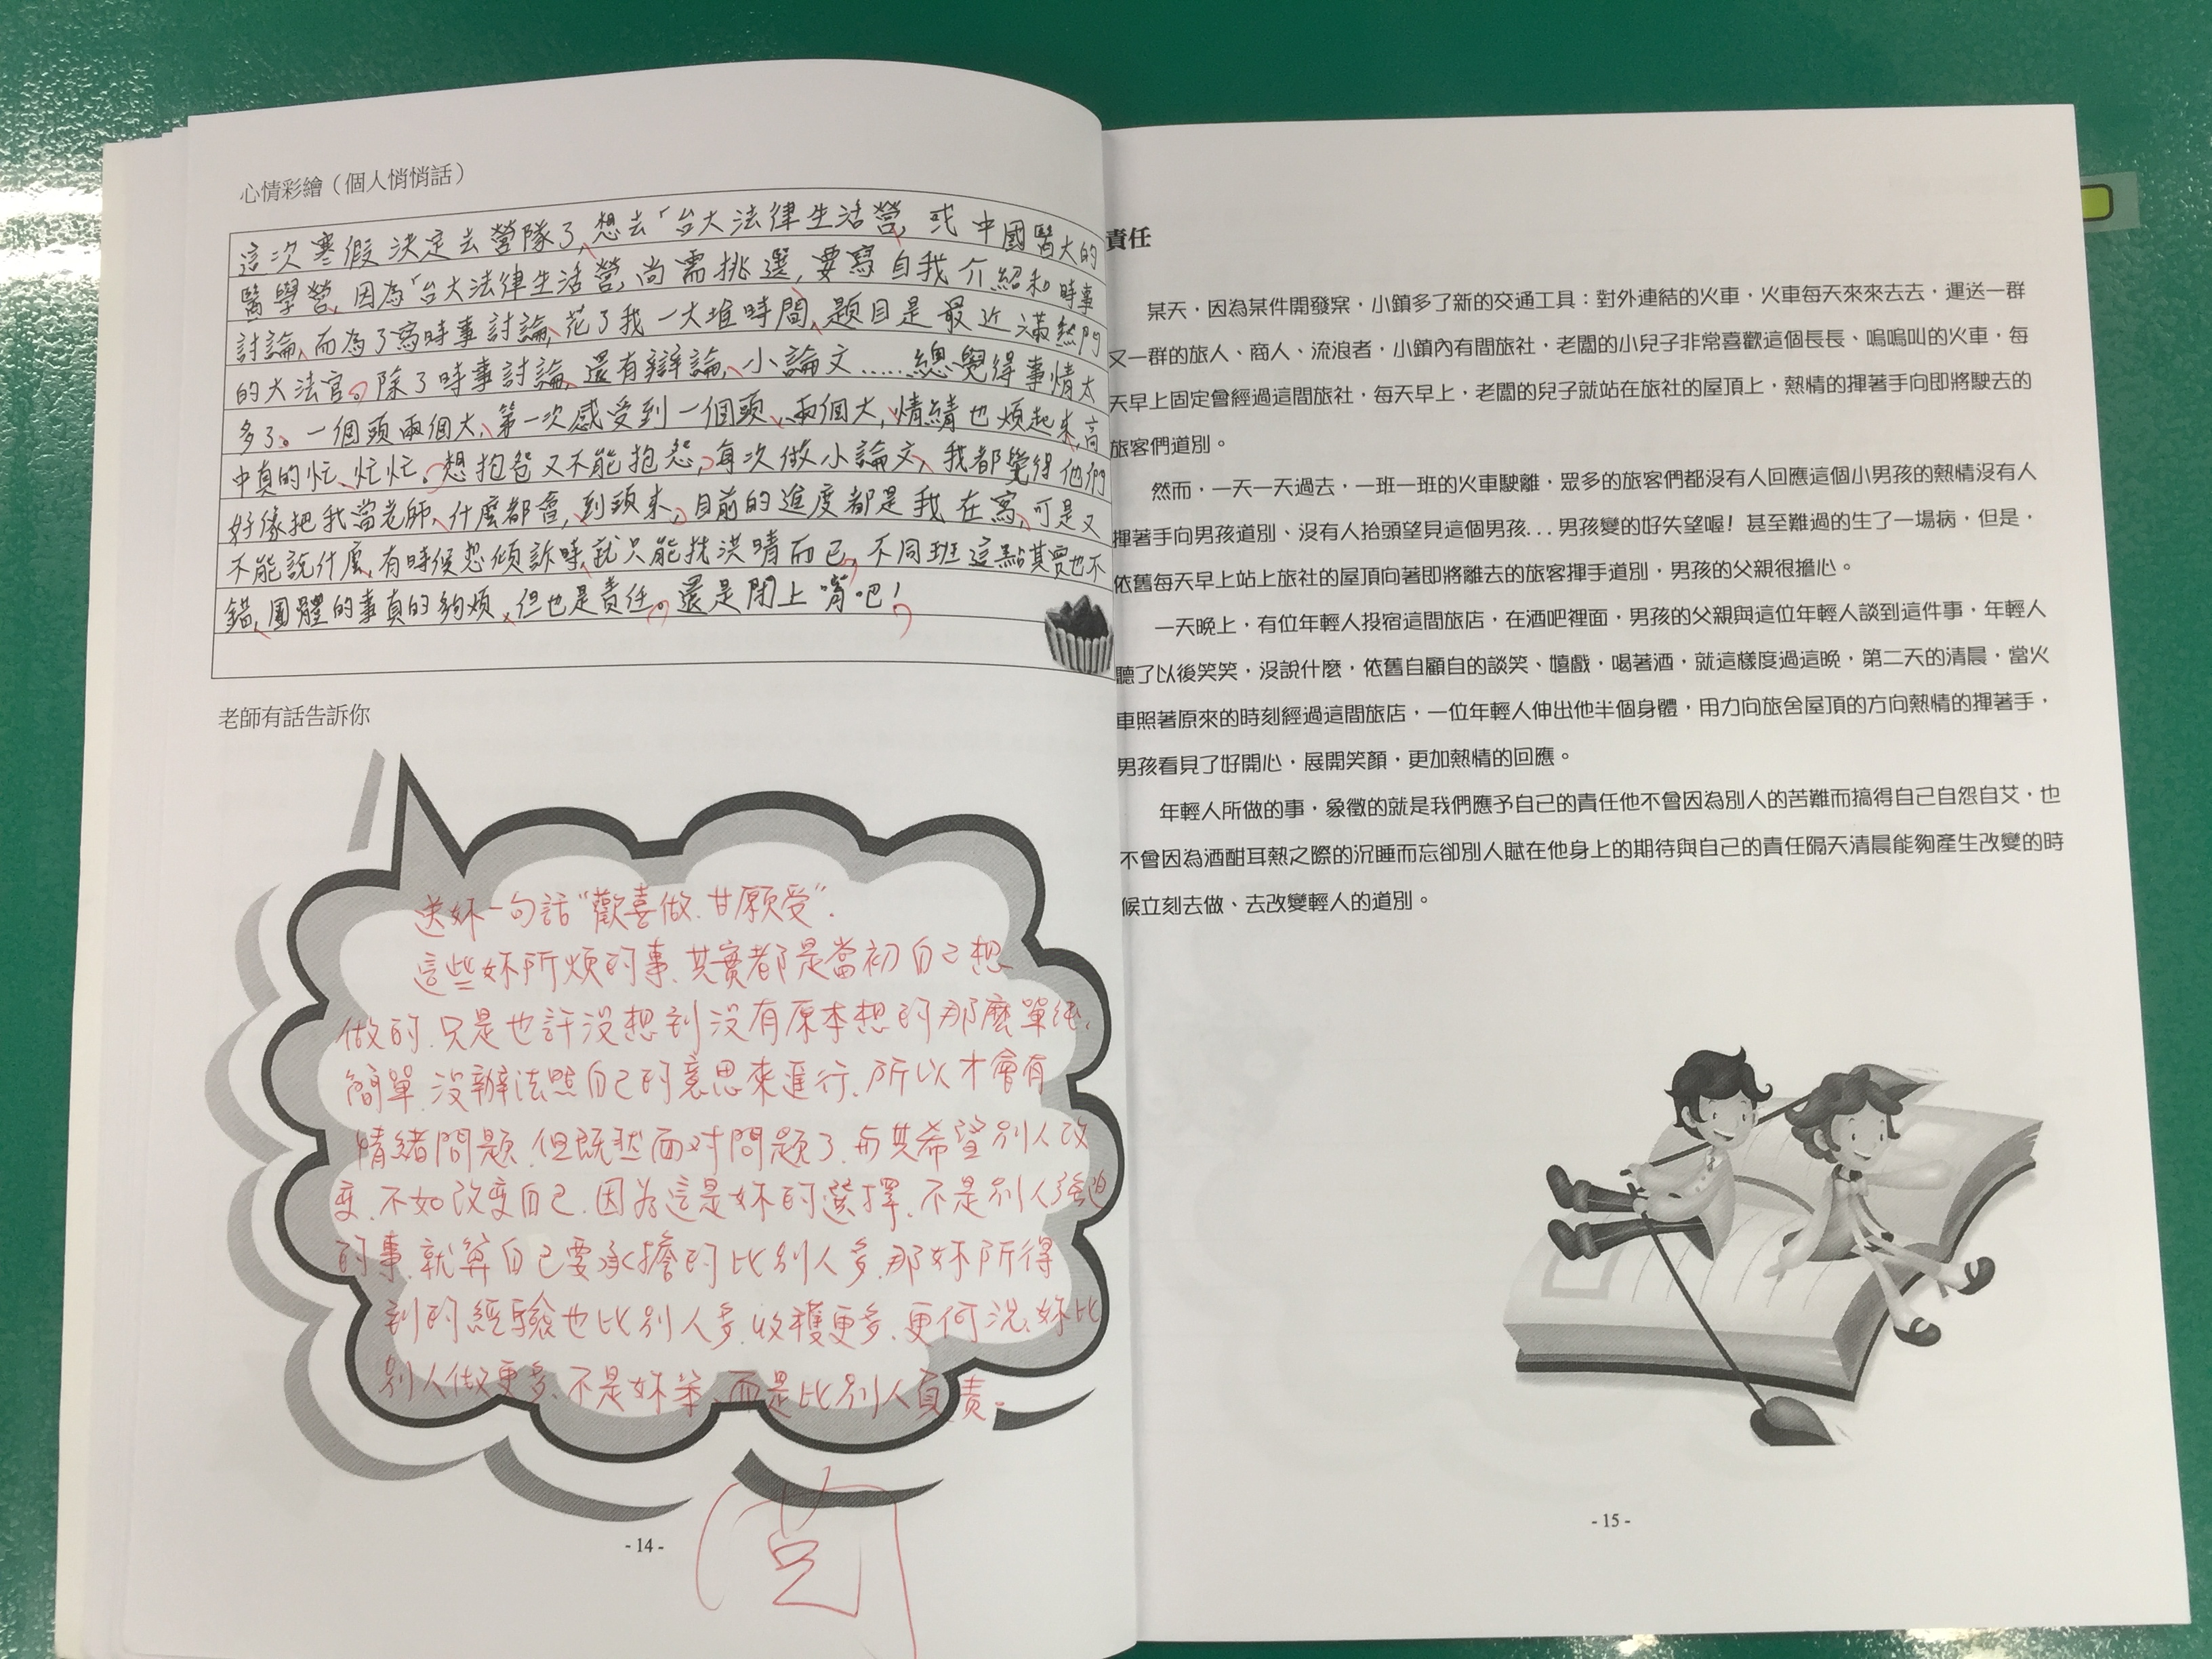 心情彩繪（個人悄悄話）
這次寒假決定去營隊了,想去「台大法律生活營,或中國醫大的
醫學營,因為「台大法律生活營,尚需挑選,要寫自我介紹和時事
討論,而為了寫時事討論,花了我一大堆時間,題目是最近滿熱門
的大法官。除了時事討論,還有辯論、小論文......總覺得事情太
多了。一個頭兩個大,第一次感受到一個頭、兩個大,情緒也煩起來,高
中真的忙、忙忙。想抱怨又不能抱怨,每次做小論文,我都覺得他們
好像把我當老師,什麼都會,到頭來,目前的進度都是我在寫,可是又
不能說什麼,有時候想傾訴時,就只能找洪晴而已,不同班這點其實也不
錯,團體的事真的夠煩,但也是責任。還是閉上嘴吧!
老師有話告訴你
送妳一句話"歡喜做.甘願受".
這些妳所煩的事.其實都是當初自己想
做的.只是也許沒想到沒有原本想的那麼單純.
簡單.沒辦法照自己的意思來進行.所以才會有
情緒問題.但既然面对問題了.与其希望別人改
变.不如改变自己.因為這是妳的選擇.不是別人強迫
的事.就算自己要承擔的比別人多.那妳所得
到的經驗也比別人多.收穫更多.更何況.妳比
別人做更多.不是妳笨、而是比別人負責。
- 14 -
責任
某天，因為某件開發案，小鎮多了新的交通工具：對外連結的火車，火車每天來來去去，運送一群
又一群的旅人、商人、流浪者，小鎮內有間旅社，老闆的小兒子非常喜歡這個長長、嗚嗚叫的火車，每
天早上固定會經過這間旅社，每天早上，老闆的兒子就站在旅社的屋頂上，熱情的揮著手向即將駛去的
旅客們道別。
然而，一天一天過去，一班一班的火車駛離，眾多的旅客們都沒有人回應這個小男孩的熱情沒有人
揮著手向男孩道別、沒有人抬頭望見這個男孩...男孩變的好失望喔！甚至難過的生了一場病，但是，
依舊每天早上站上旅社的屋頂向著即將離去的旅客揮手道別，男孩的父親很擔心。
一天晚上，有位年輕人投宿這間旅店，在酒吧裡面，男孩的父親與這位年輕人談到這件事，年輕人
聽了以後笑笑，沒說什麼，依舊自顧自的談笑、嬉戲，喝著酒，就這樣度過這晚，第二天的清晨，當火
車照著原來的時刻經過這間旅店，一位年輕人伸出他半個身體，用力向旅舍屋頂的方向熱情的揮著手，
男孩看見了好開心，展開笑顏，更加熱情的回應。
年輕人所做的事，象徵的就是我們應予自己的責任他不會因為別人的苦難而搞得自己自怨自艾，也
不會因為酒酣耳熱之際的沉睡而忘卻別人賦在他身上的期待與自己的責任隔天清晨能夠產生改變的時
候立刻去做、去改變輕人的道別。
- 15 -